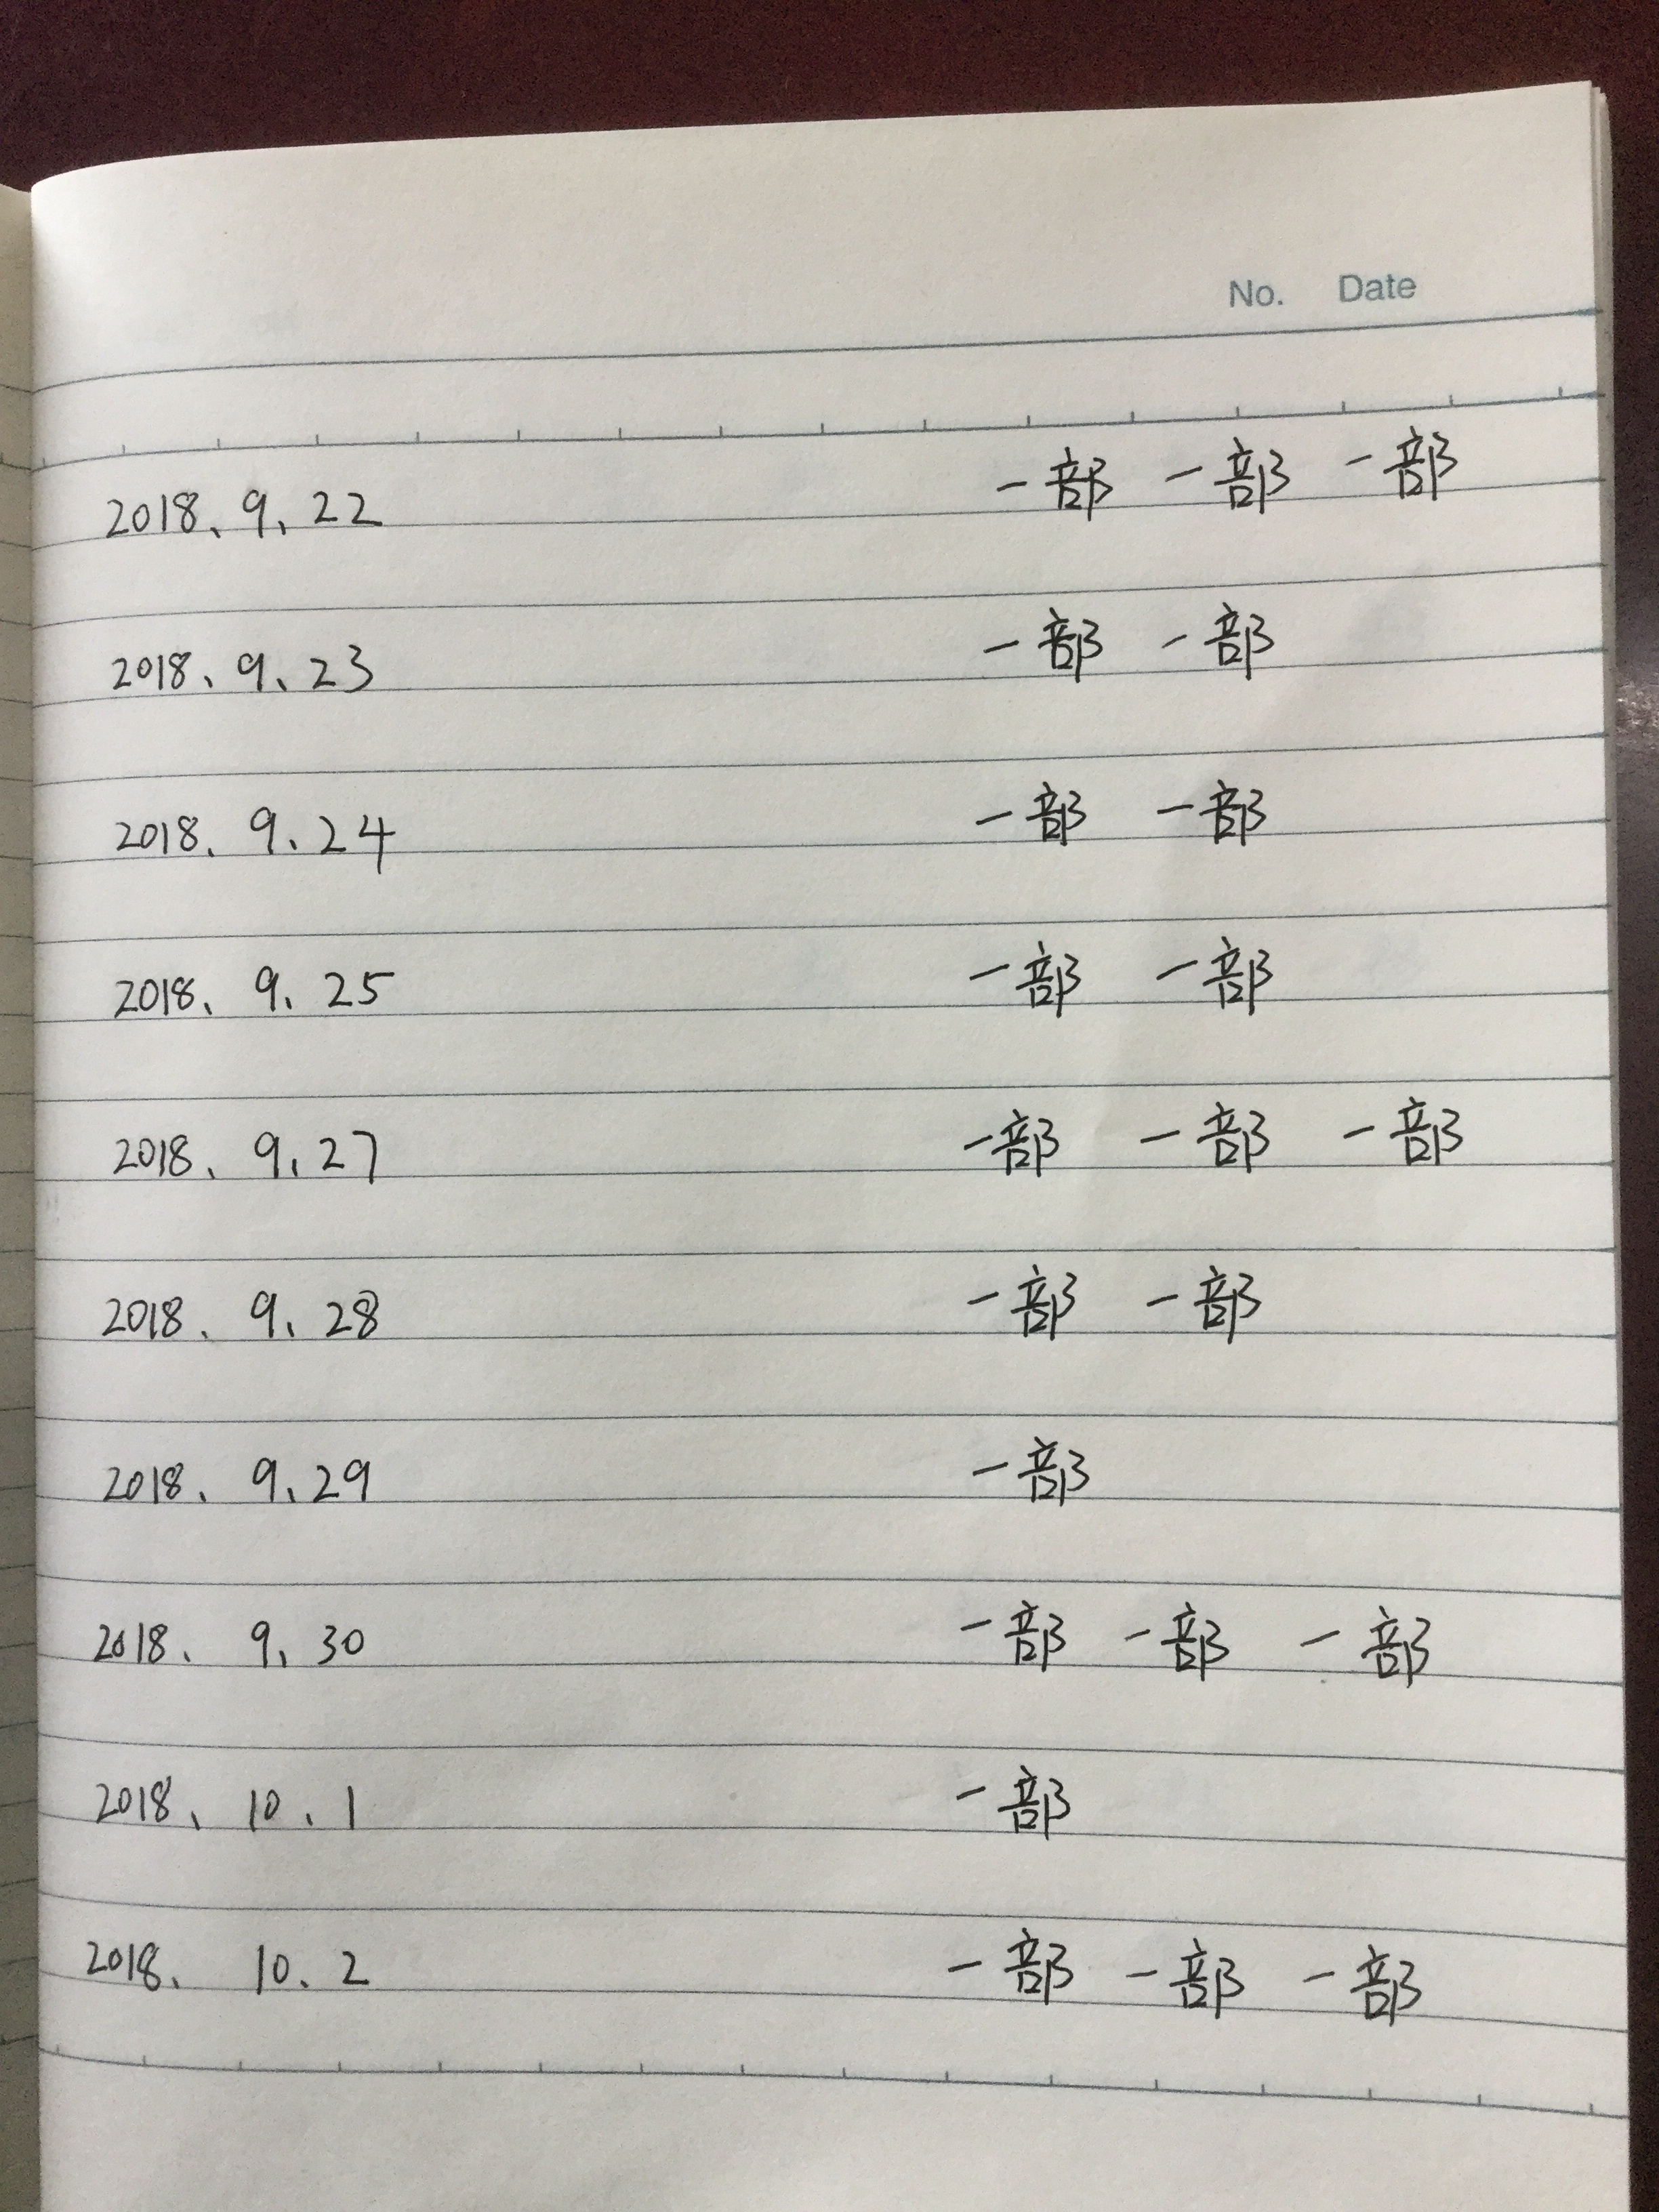 No. Date
2018、9、22 一部 一部 一部
2018、9、23 一部 一部
2018、9、24 一部 一部
2018、9、25 一部 一部
2018、9、27 一部 一部 一部
2018、9、28 一部 一部
2018、9、29 一部
2018、9、30 一部 一部 一部
2018、10、1 一部
2018、10、2 一部 一部 一部